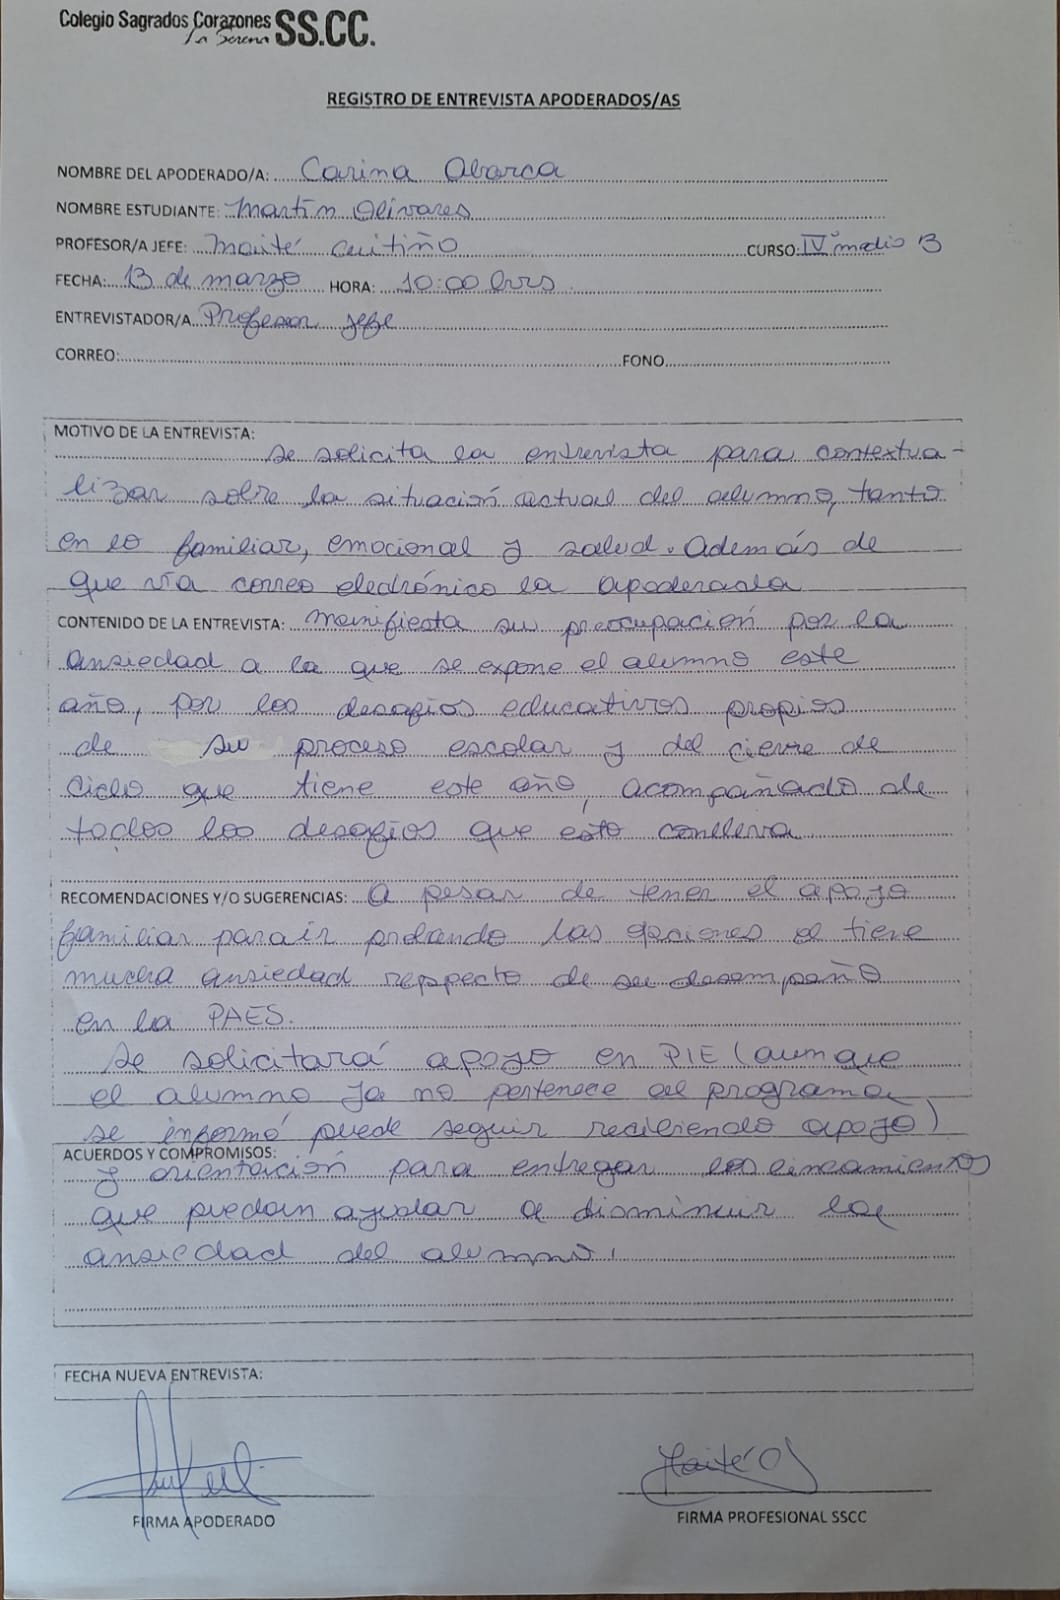 Colegio Sagrados Corazones SS.CC.
La Serena
REGISTRO DE ENTREVISTA APODERADOS/AS
NOMBRE DEL APODERADO/A: Carima Abarca
NOMBRE ESTUDIANTE: Martín Olivares
PROFESOR/A JEFE: Maité Cuitiño CURSO: IV° medio B
FECHA: 13 de marzo HORA: 10:00 hrs
ENTREVISTADOR/A Profesor jefe
CORREO: FONO
MOTIVO DE LA ENTREVISTA:
Se solicita la entrevista para contextua-
lizar sobre la situación actual del alumno, tanto
en lo familiar, emocional y salud. Además de
que vía correo electrónico la apoderada
CONTENIDO DE LA ENTREVISTA: manifiesta su preocupación por la
ansiedad a la que se expone el alumno este
año, por los desafíos educativos propios
de su proceso escolar y del cierre de
ciclo que tiene este año, acompañado de
todos los desafíos que esto conlleva
RECOMENDACIONES Y/O SUGERENCIAS: A pesar de tener el apoyo
familiar para ir probando las opciones el tiene
mucha ansiedad respecto de su desempeño
en la PAES.
Se solicitará apoyo en PIE (aunque
el alumno ya no pertenece al programa
se informó puede seguir recibiendo apoyo)
ACUERDOS Y COMPROMISOS:
y orientación para entregar los lineamientos
que puedan ayudar a disminuir la
ansiedad del alumno.
FECHA NUEVA ENTREVISTA:
Maité C
FIRMA APODERADO
FIRMA PROFESIONAL SSCC